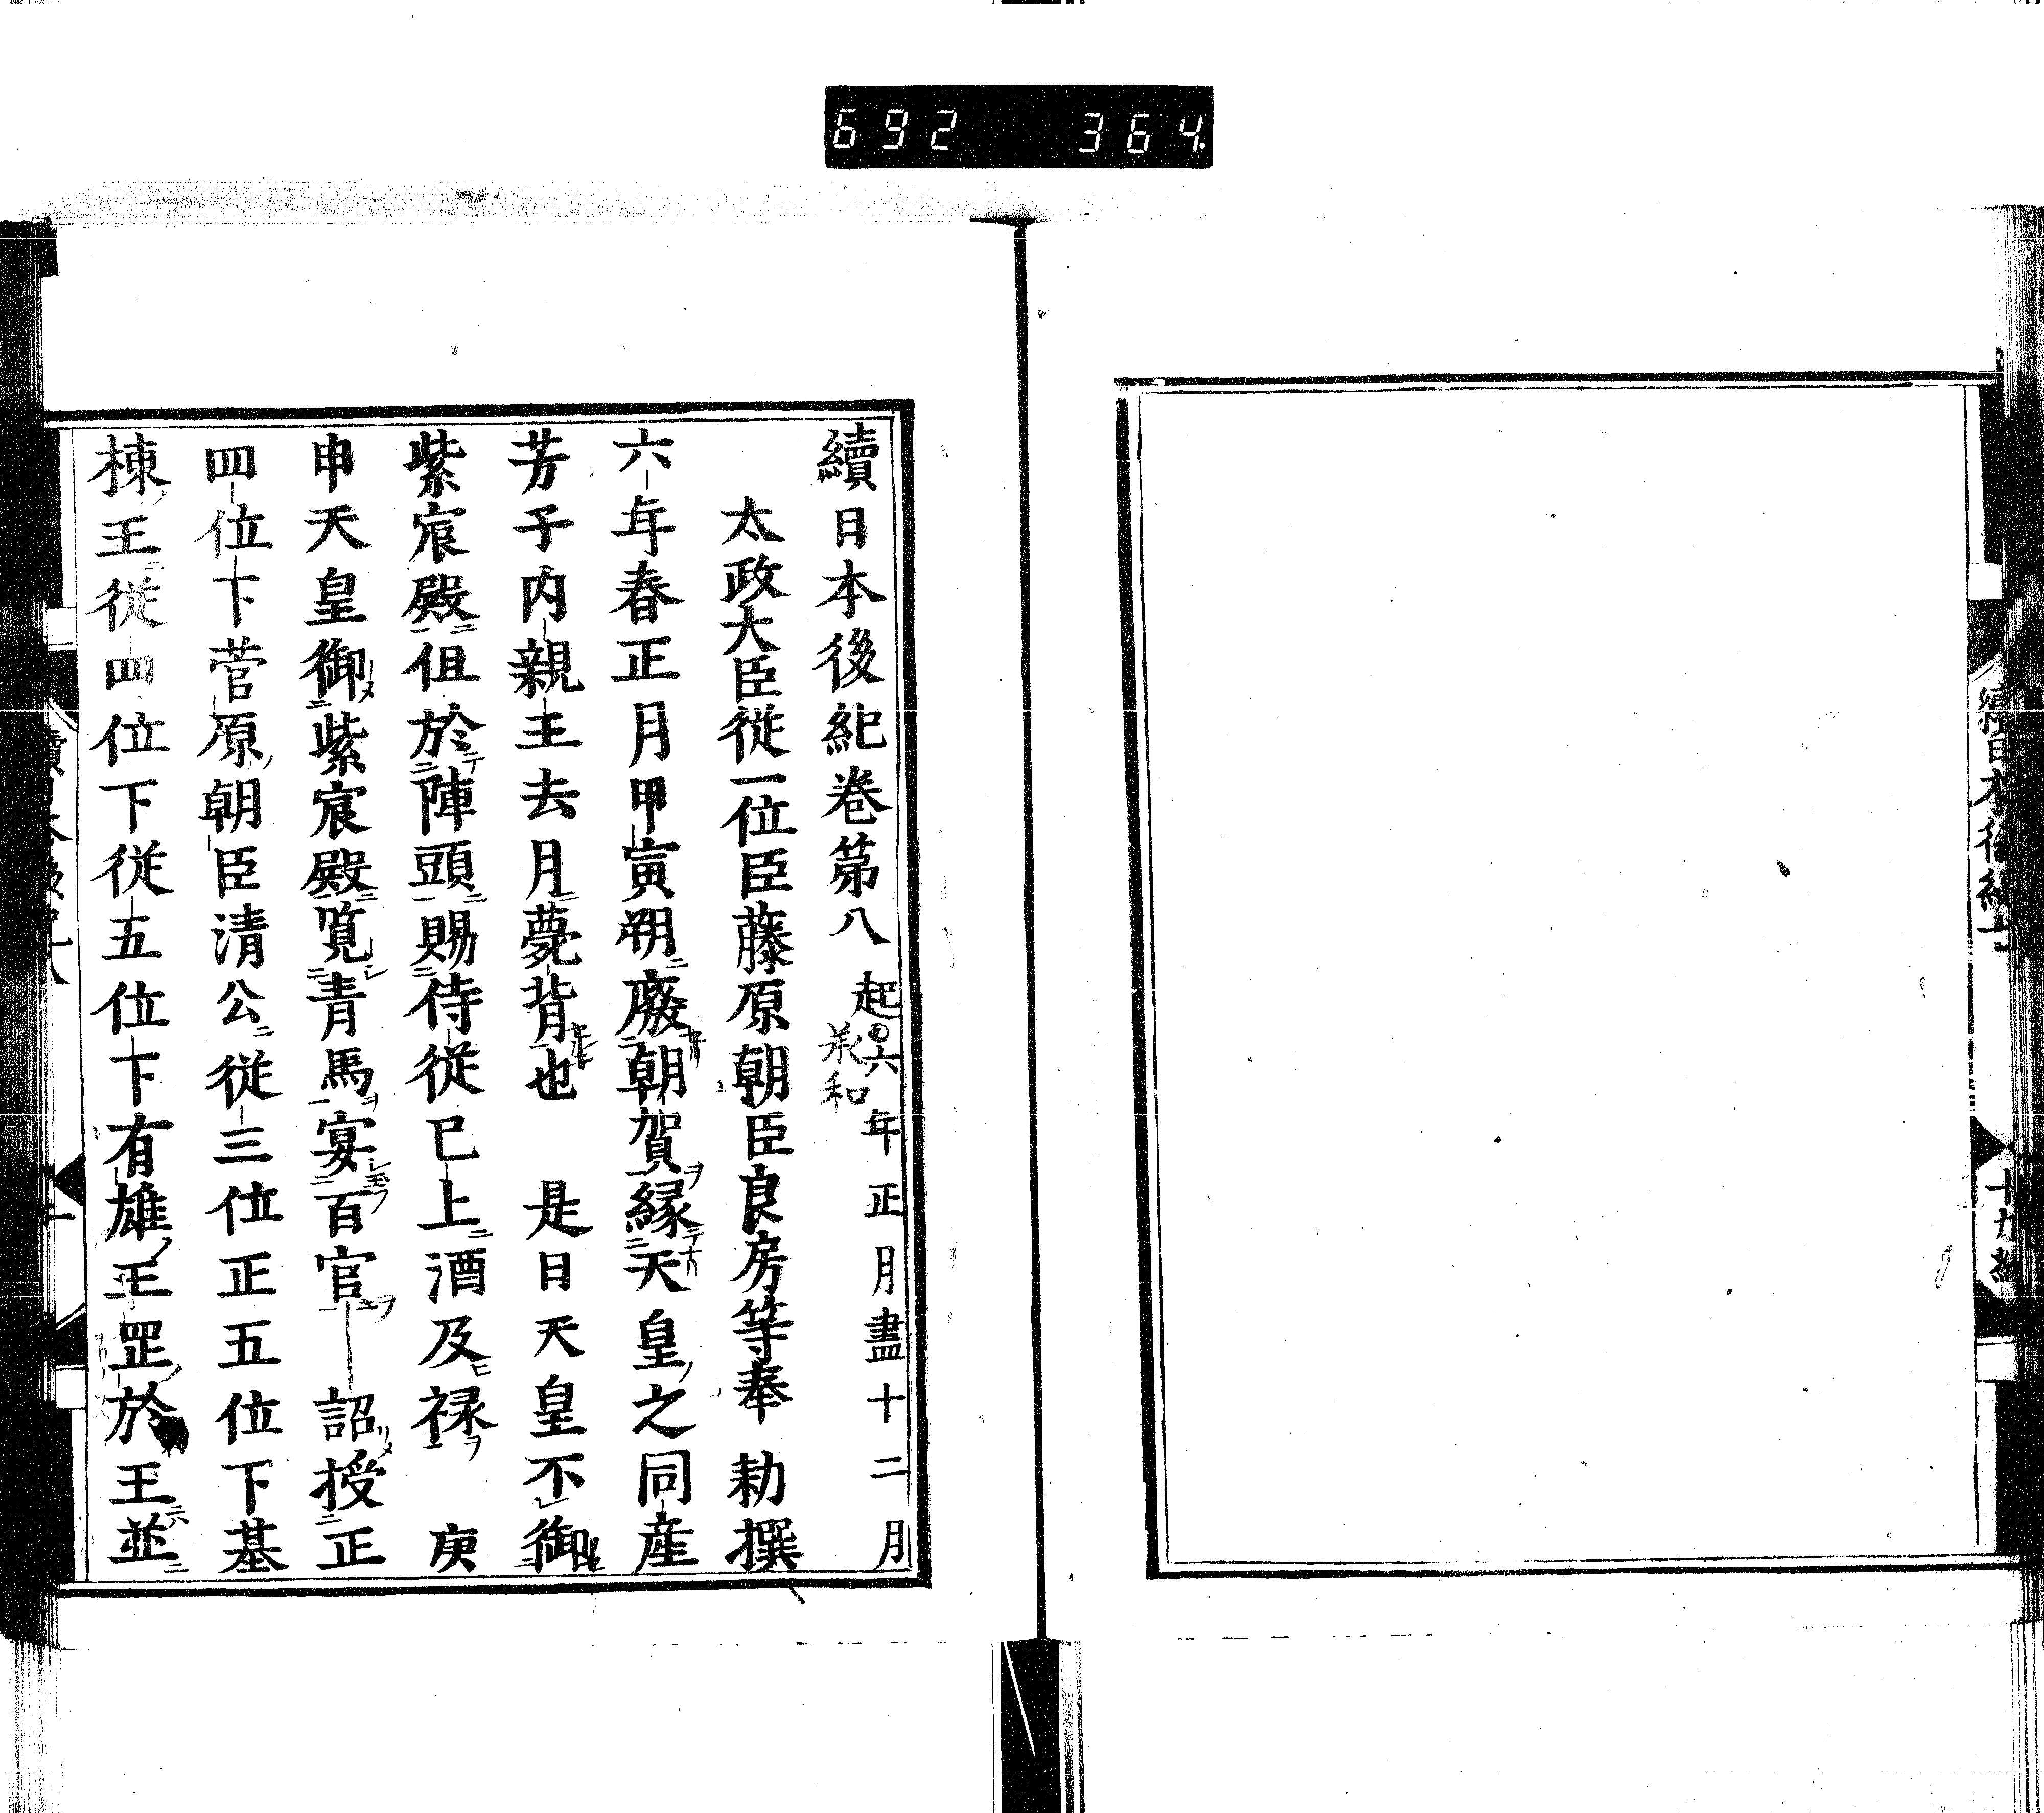 692 364
續日本後紀卷第八 起六年正月盡十二月
承和
太政大臣從一位臣藤原朝臣良房等奉 勅撰
六年春正月甲寅朔廢朝賀緣天皇之同産
芳子内親王去月薨背也 是日天皇不御
紫宸殿但於陣頭賜侍從已上酒及祿 庚
申天皇御紫宸殿覧青馬宴百官 詔授正
四位下菅原朝臣清公從三位正五位下基
棟王從四位下從五位下有雄王罡於王並